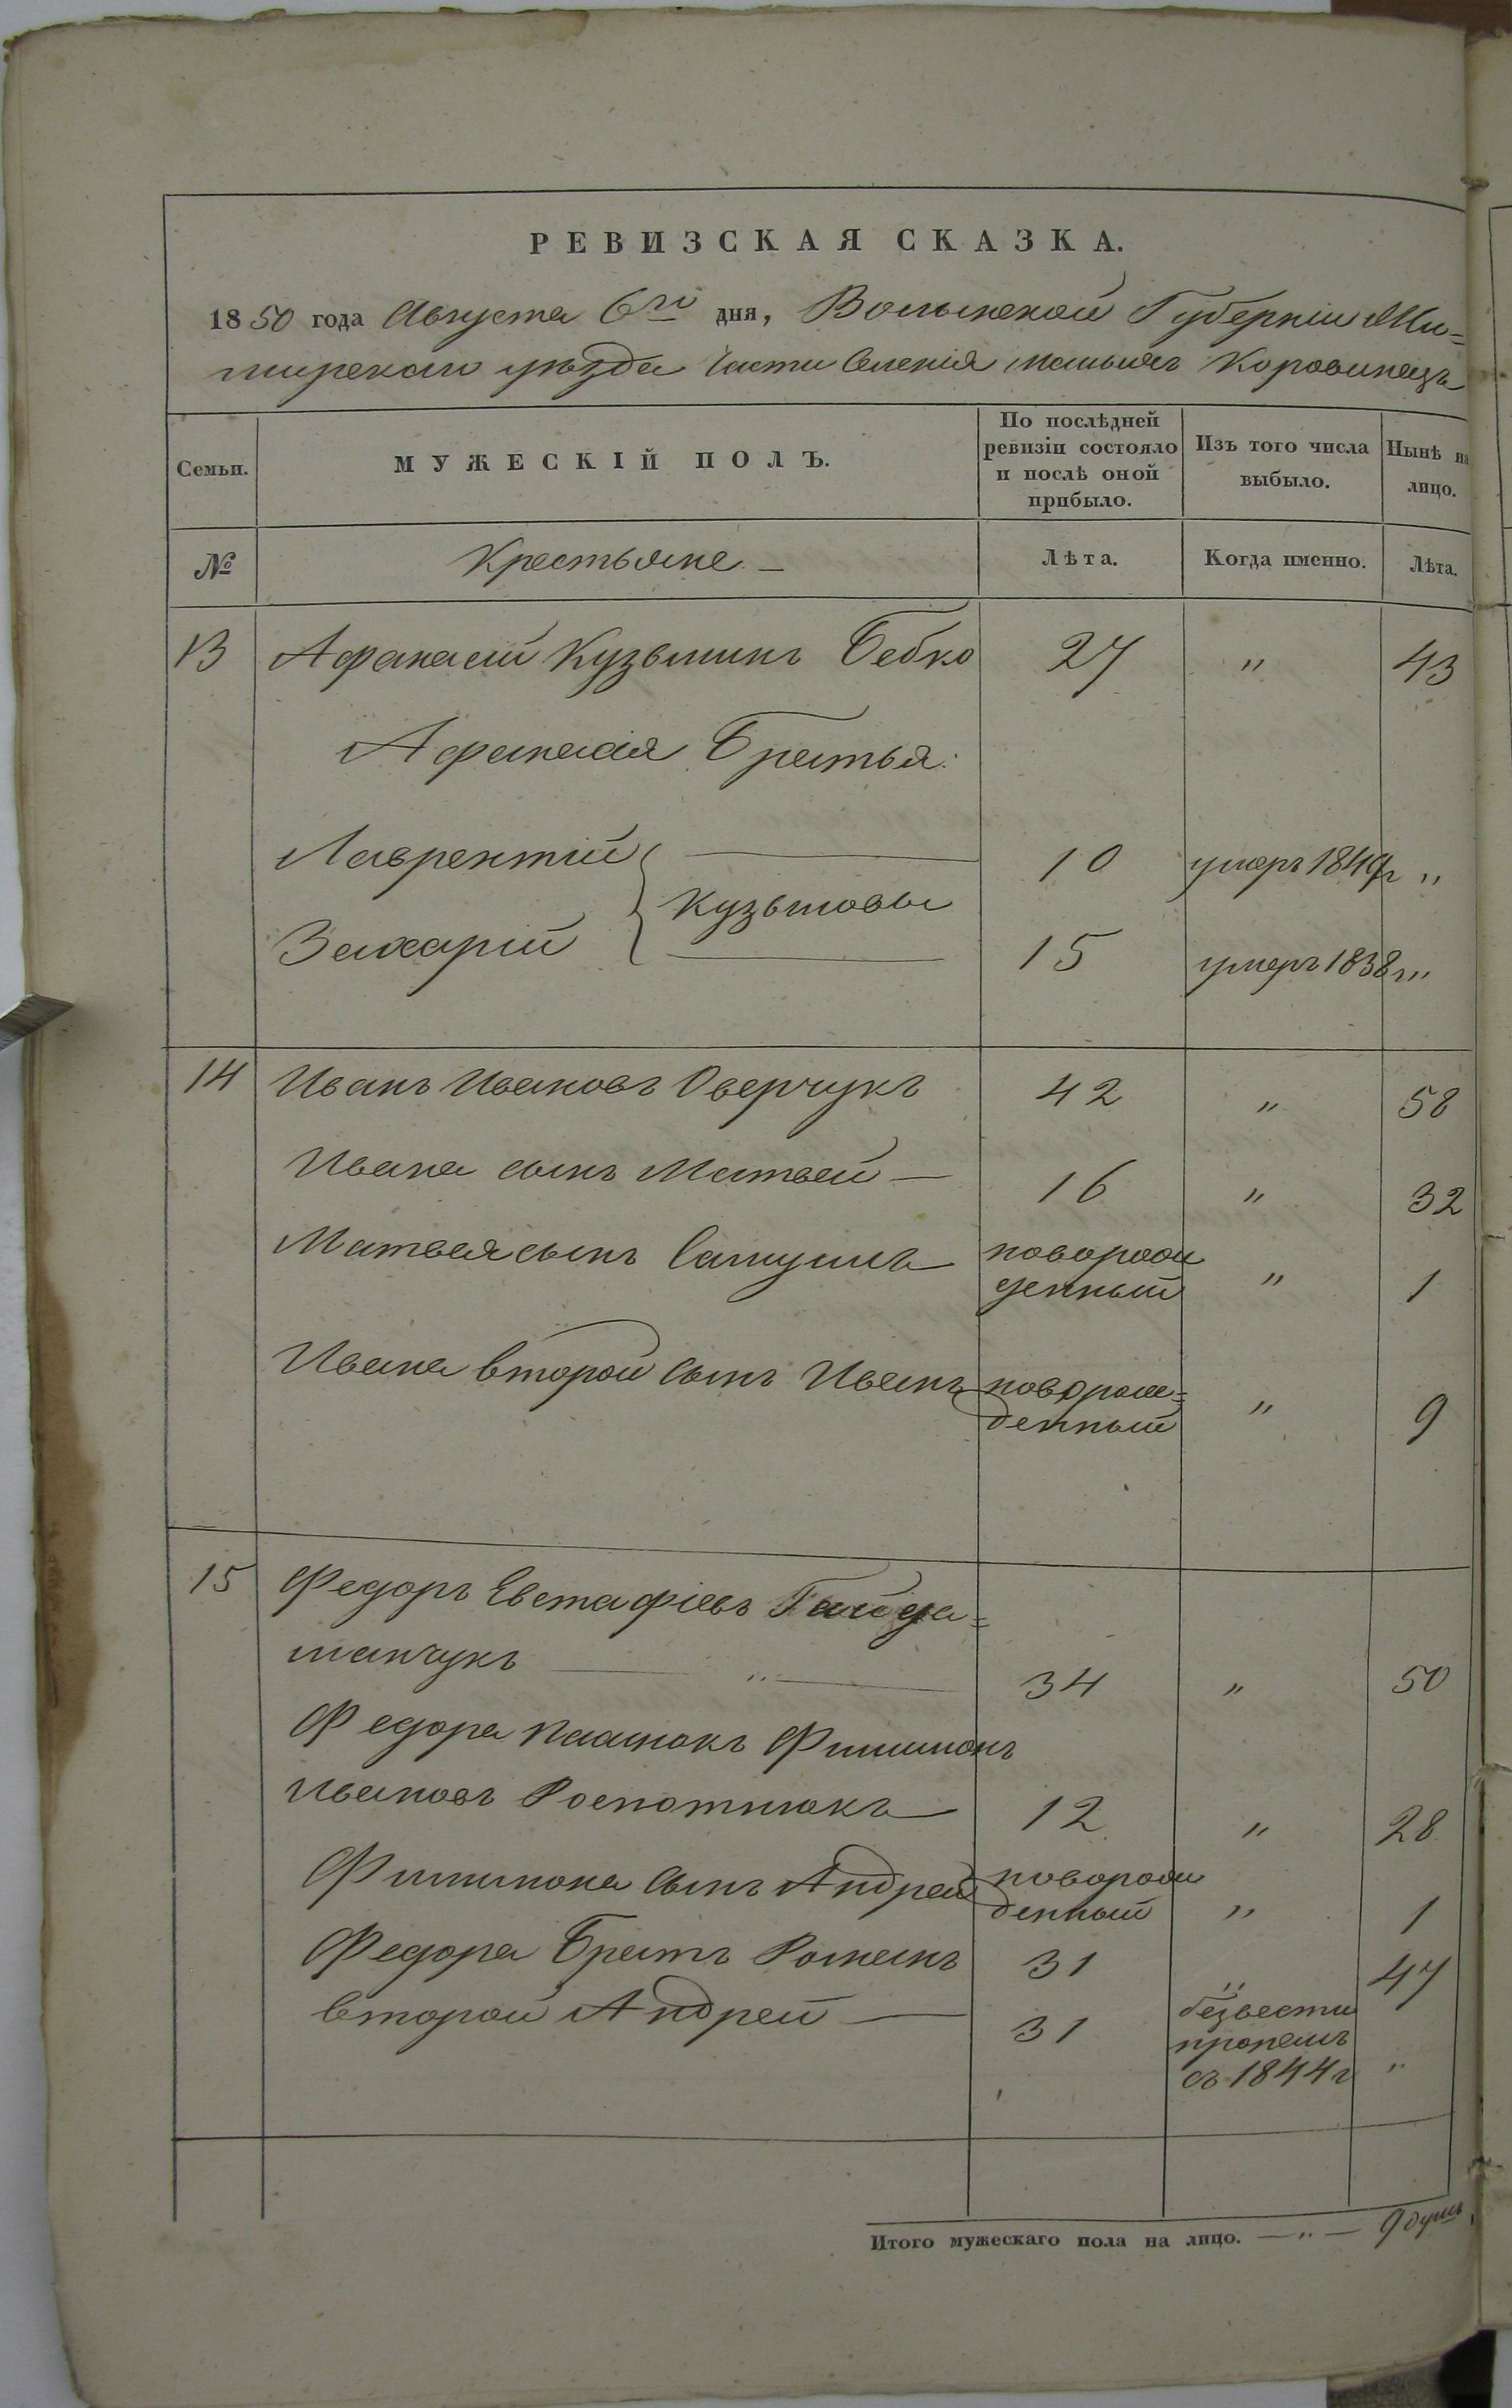 РЕВИЗСКАЯ СКАЗКА.
1850 года Августа 6го дня, Волынской Губерніи Жи=
тмирскаго уѣзда Части Селенія малыхъ Коровинецъ
Семьи. МУЖЕСКІЙ ПОЛЪ. По послѣдней ревизіи состояло и послѣ оной прибыло. Изъ того числа выбыло. Нынѣ на лицо.
№ Крестьяне. — Лѣта. Когда именно. Лѣта.
13 Афанасій Кузьминъ Бебко 27 " 43
Афанасія Братья:
Лаврентій 10 умеръ 1849г "
Кузьмовы
Захарій 15 умеръ 1838г "
14 Иванъ Ивановъ Оверчукъ 42 " 58
Ивана сынъ Матвей — 16 " 32
Матвея сынъ Самуилъ новорож
денный " 1
Ивана второй сынъ Иванъ новорож=
денный " 9
15 Федоръ Евстафіевъ Гайда=
манчукъ " 34 " 50
Федора пасынокъ Филимонъ
Ивановъ Роспотнюкъ 12 " 28
Филимона сынъ Андрей новорож
денный " 1
Федора Братъ Романъ 31 " 47
второй Андрей — 31 безвести
пропалъ
съ 1844г "
Итого мужескаго пола на лицо. — " — 9 душъ